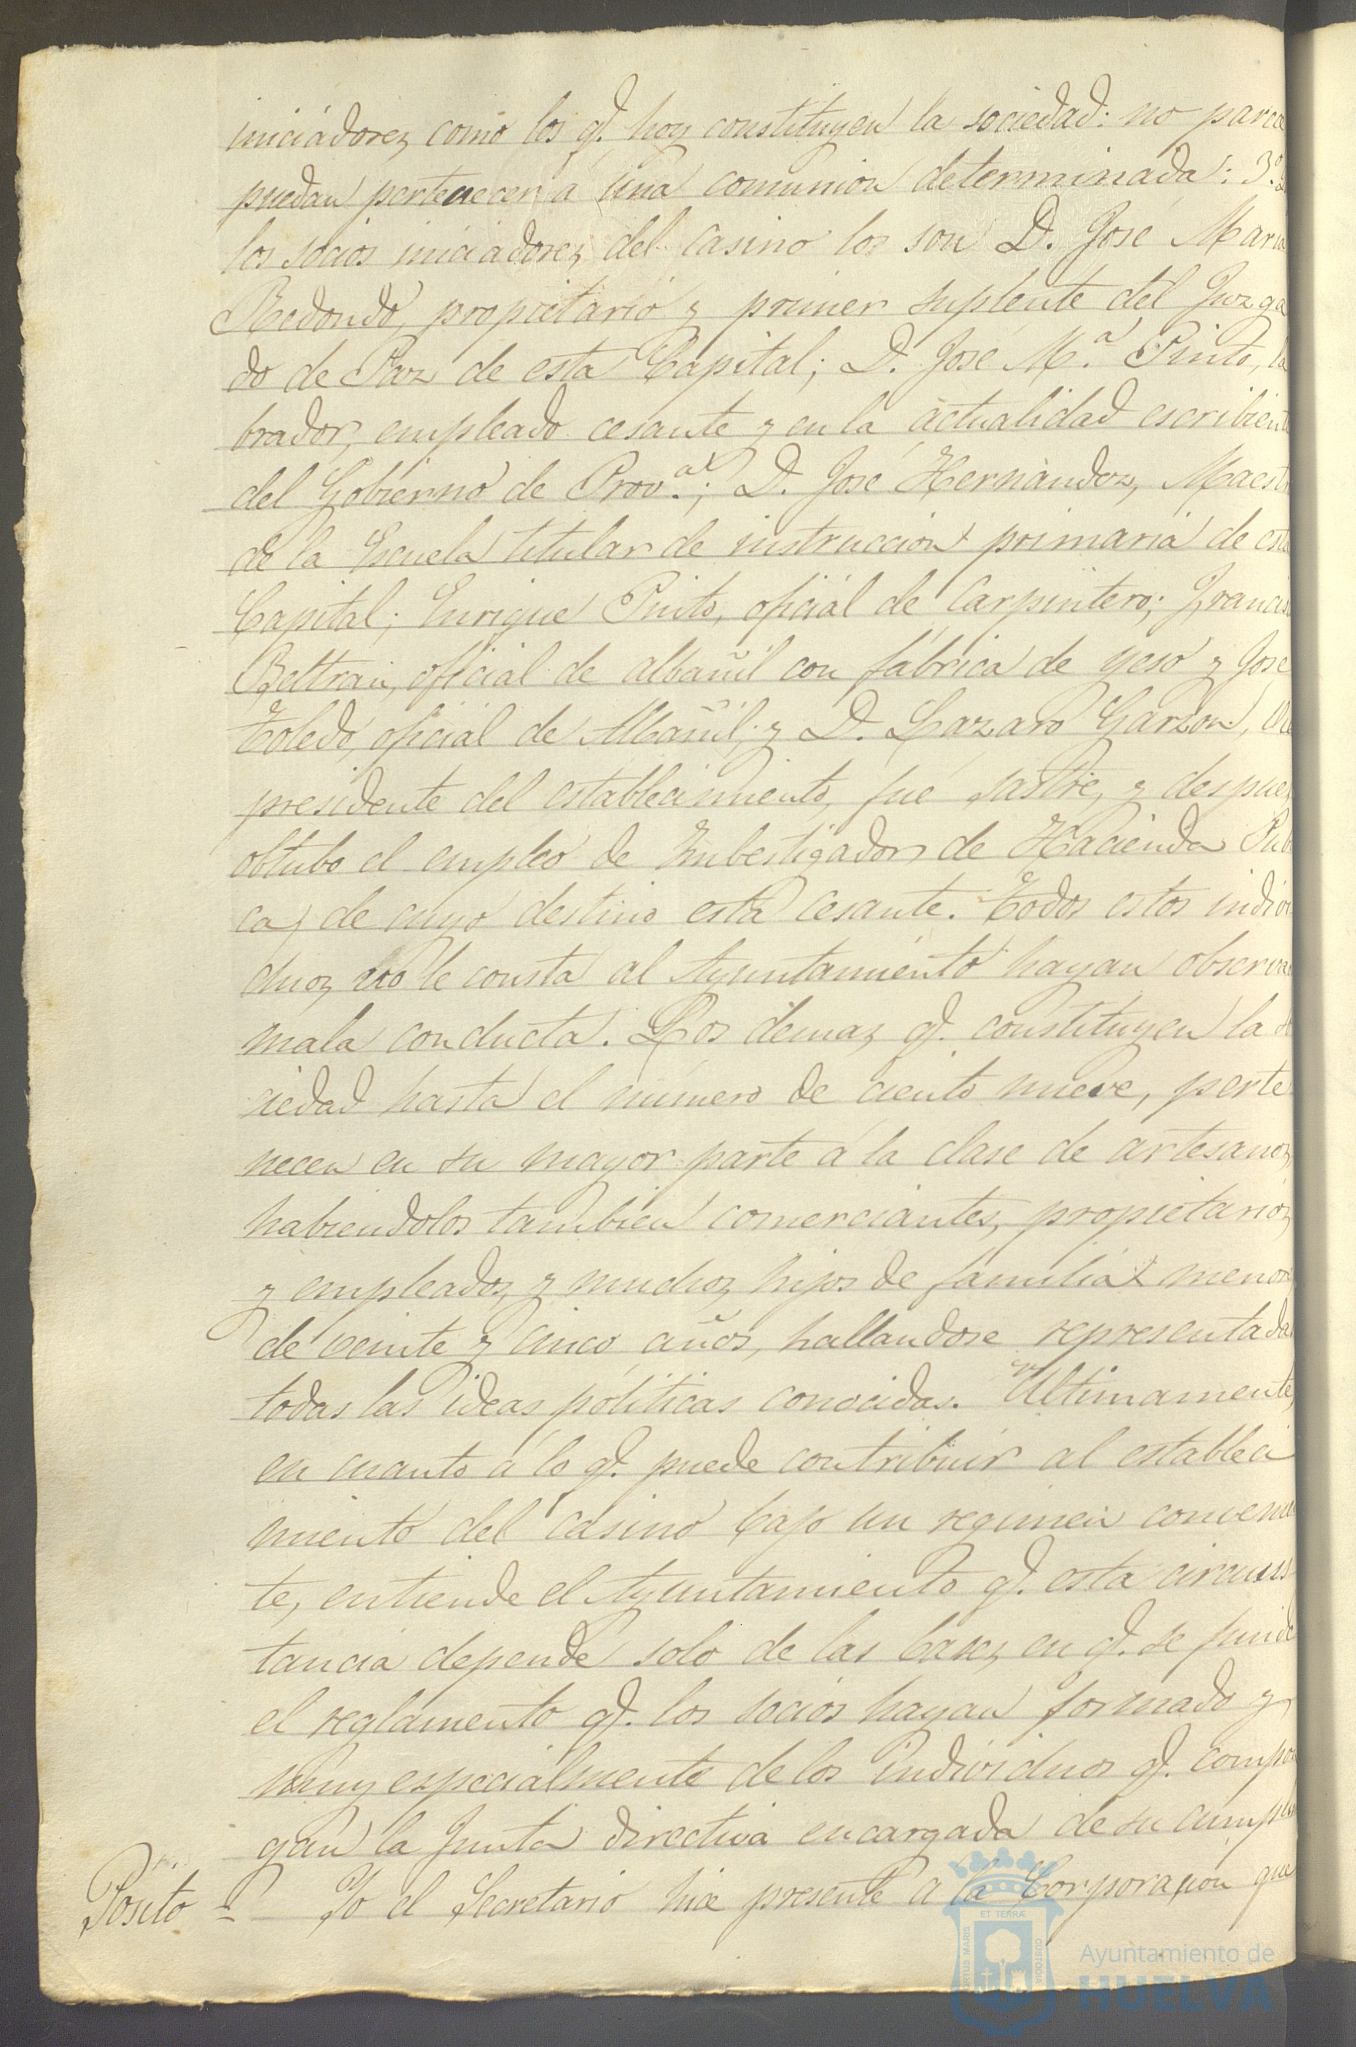 iniciadores como los q.e hoy constituyen la sociedad: no parece
puedan pertenecer á una comunion determinada: 3.º
los socios iniciadores del casino lo son D. José Maria
Redondo, propietario y primer suplente del Juzga
do de Paz de esta Capital; D. José M.ª Pinto, la
brador, empleado cesante y en la actualidad escribiente
del Gobierno de Prov.al; D. José Hernandez, Maestro
de la Escuela titular de instruccion primaria de esta
Capital; Enrique Pinto, oficial de Carpintero; Francisco
Beltran, oficial de albañil con fábrica de yeso y José
Toledo, oficial de Albañil; y D. Lazaro Garzon,
presidente del establecimiento, fue sastre, y despues
obtubo el empleo de Imbestigador de Hacienda Pub
ca, de cuyo destino está cesante. Todos estos indivi
duos no le consta al Ayuntamiento hayan observado
mala conducta. Los demas q.e constituyen la so
ciedad hasta el número de ciento nueve, perte
necen en su mayor parte á la clase de artesanos,
habiendolos tambien comerciantes, propietarios
y empleados, y muchos hijos de familia menores
de veinte y cinco años, hallandose representadas
todas las ideas políticas conocidas. Ultimamente,
en cuanto á lo q.e puede contribuir al estableci
miento del casino bajo un regimen convenien
te, entiende el Ayuntamiento q.e esta circuns
tancia depende solo de las bases en q.e se funde
el reglamento q.e los socios hayan formado y
muy especialmente de los individuos q.e compon
gan la Junta directiva encargada de su cumpli
Posito = Yo el Secretario hice presente a la Corporacion que
ET TERRÆ
PORTUS MARIS
CUSTODIA
Ayuntamiento de
HUELVA